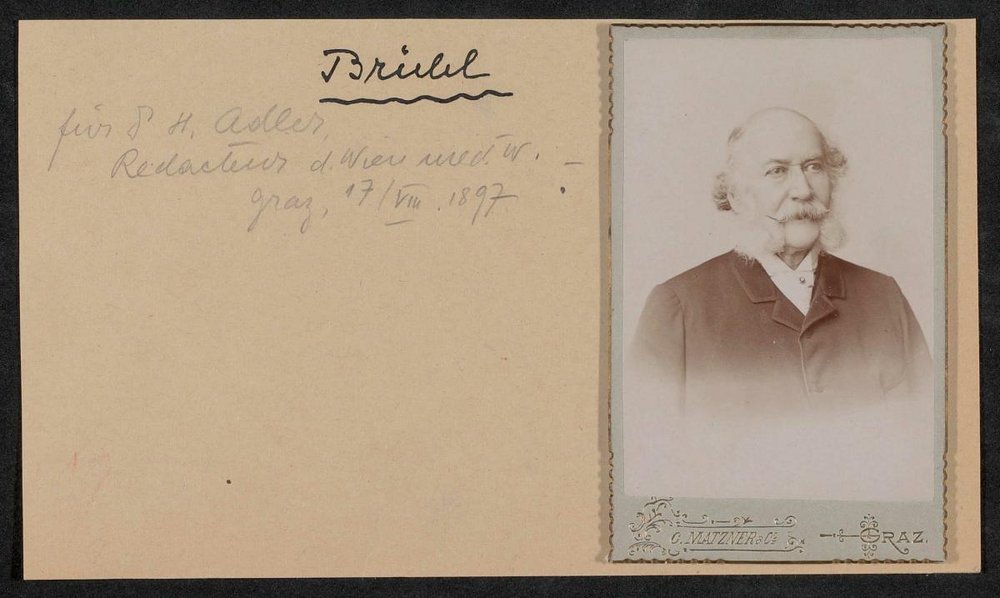 Brühl
für Dr H. Adler,
Redacteur d. Wien med. W. –
Graz, 17/VIII. 1897
C. MATZNER & Co GRAZ.